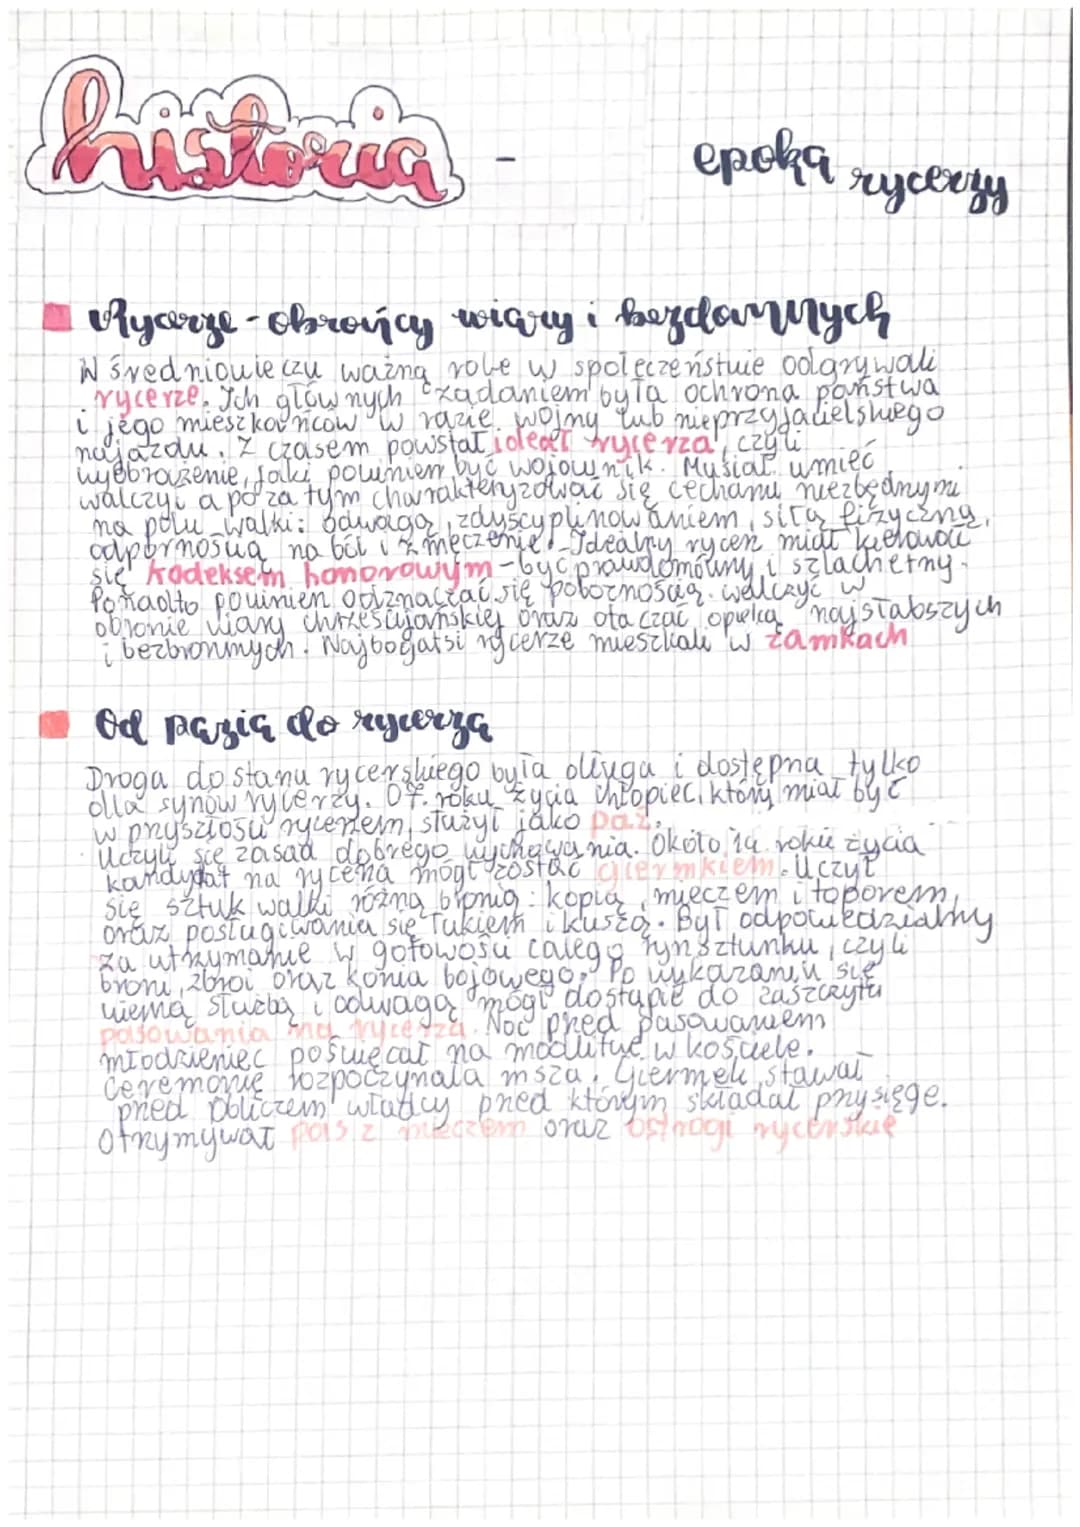 historia - epoka rycerzy
Rycerze - obrońcy wiary i bezdomnych
W średniowieczu ważną role w społeczeństwie odgrywali
rycerze. Ich głównych zadaniem była ochrona państwa
i jego mieszkańców w razie wojny lub nieprzyjacielskiego
najazdu. Z czasem powstał ideał rycerza, czyli
wyobrażenie, jaki powinien być wojownik. Musiał umieć
walczyć a poza tym charakteryzować się cechami niezbędnymi
na polu walki: odwagą, zdyscyplinowaniem, siłą fizyczną,
odpornością na ból i zmęczenie. Idealny rycerz miał kierować
się kodeksem honorowym - być prawdomówny i szlachetny.
Ponadto powinien odznaczać się pobożnością, walczyć w
obronie wiary chrześcijańskiej oraz otaczać opieką najsłabszych
i bezbronnych. Najbogatsi rycerze mieszkali w zamkach
Od pazia do rycerza
Droga do stanu rycerskiego była długa i dostępna tylko
dla synów rycerzy. Od 7. roku życia chłopiec, który miał być
w przyszłości rycerzem, służył jako paź.
Uczyli się zasad dobrego wychowania. Około 14. roku życia
kandydat na rycerza mógł zostać giermkiem. Uczył
się sztuk walki różną bronią: kopią, mieczem i toporem,
oraz posługiwania się łukiem i kuszą. Był odpowiedzialny
za utrzymanie w gotowości całego rynsztunku, czyli
broni, zbroi oraz konia bojowego. Po wykazaniu się
wierną służbą i odwagą mógł dostąpić do zaszczytu
pasowania na rycerza. Noc przed pasowaniem
młodzieniec poświęcał na modlitwę w kościele.
Ceremonię rozpoczynała msza. Giermek stawał
przed obliczem władcy przed którym składał przysięgę.
Otrzymywał pas z mieczem oraz ostrogi rycerskie